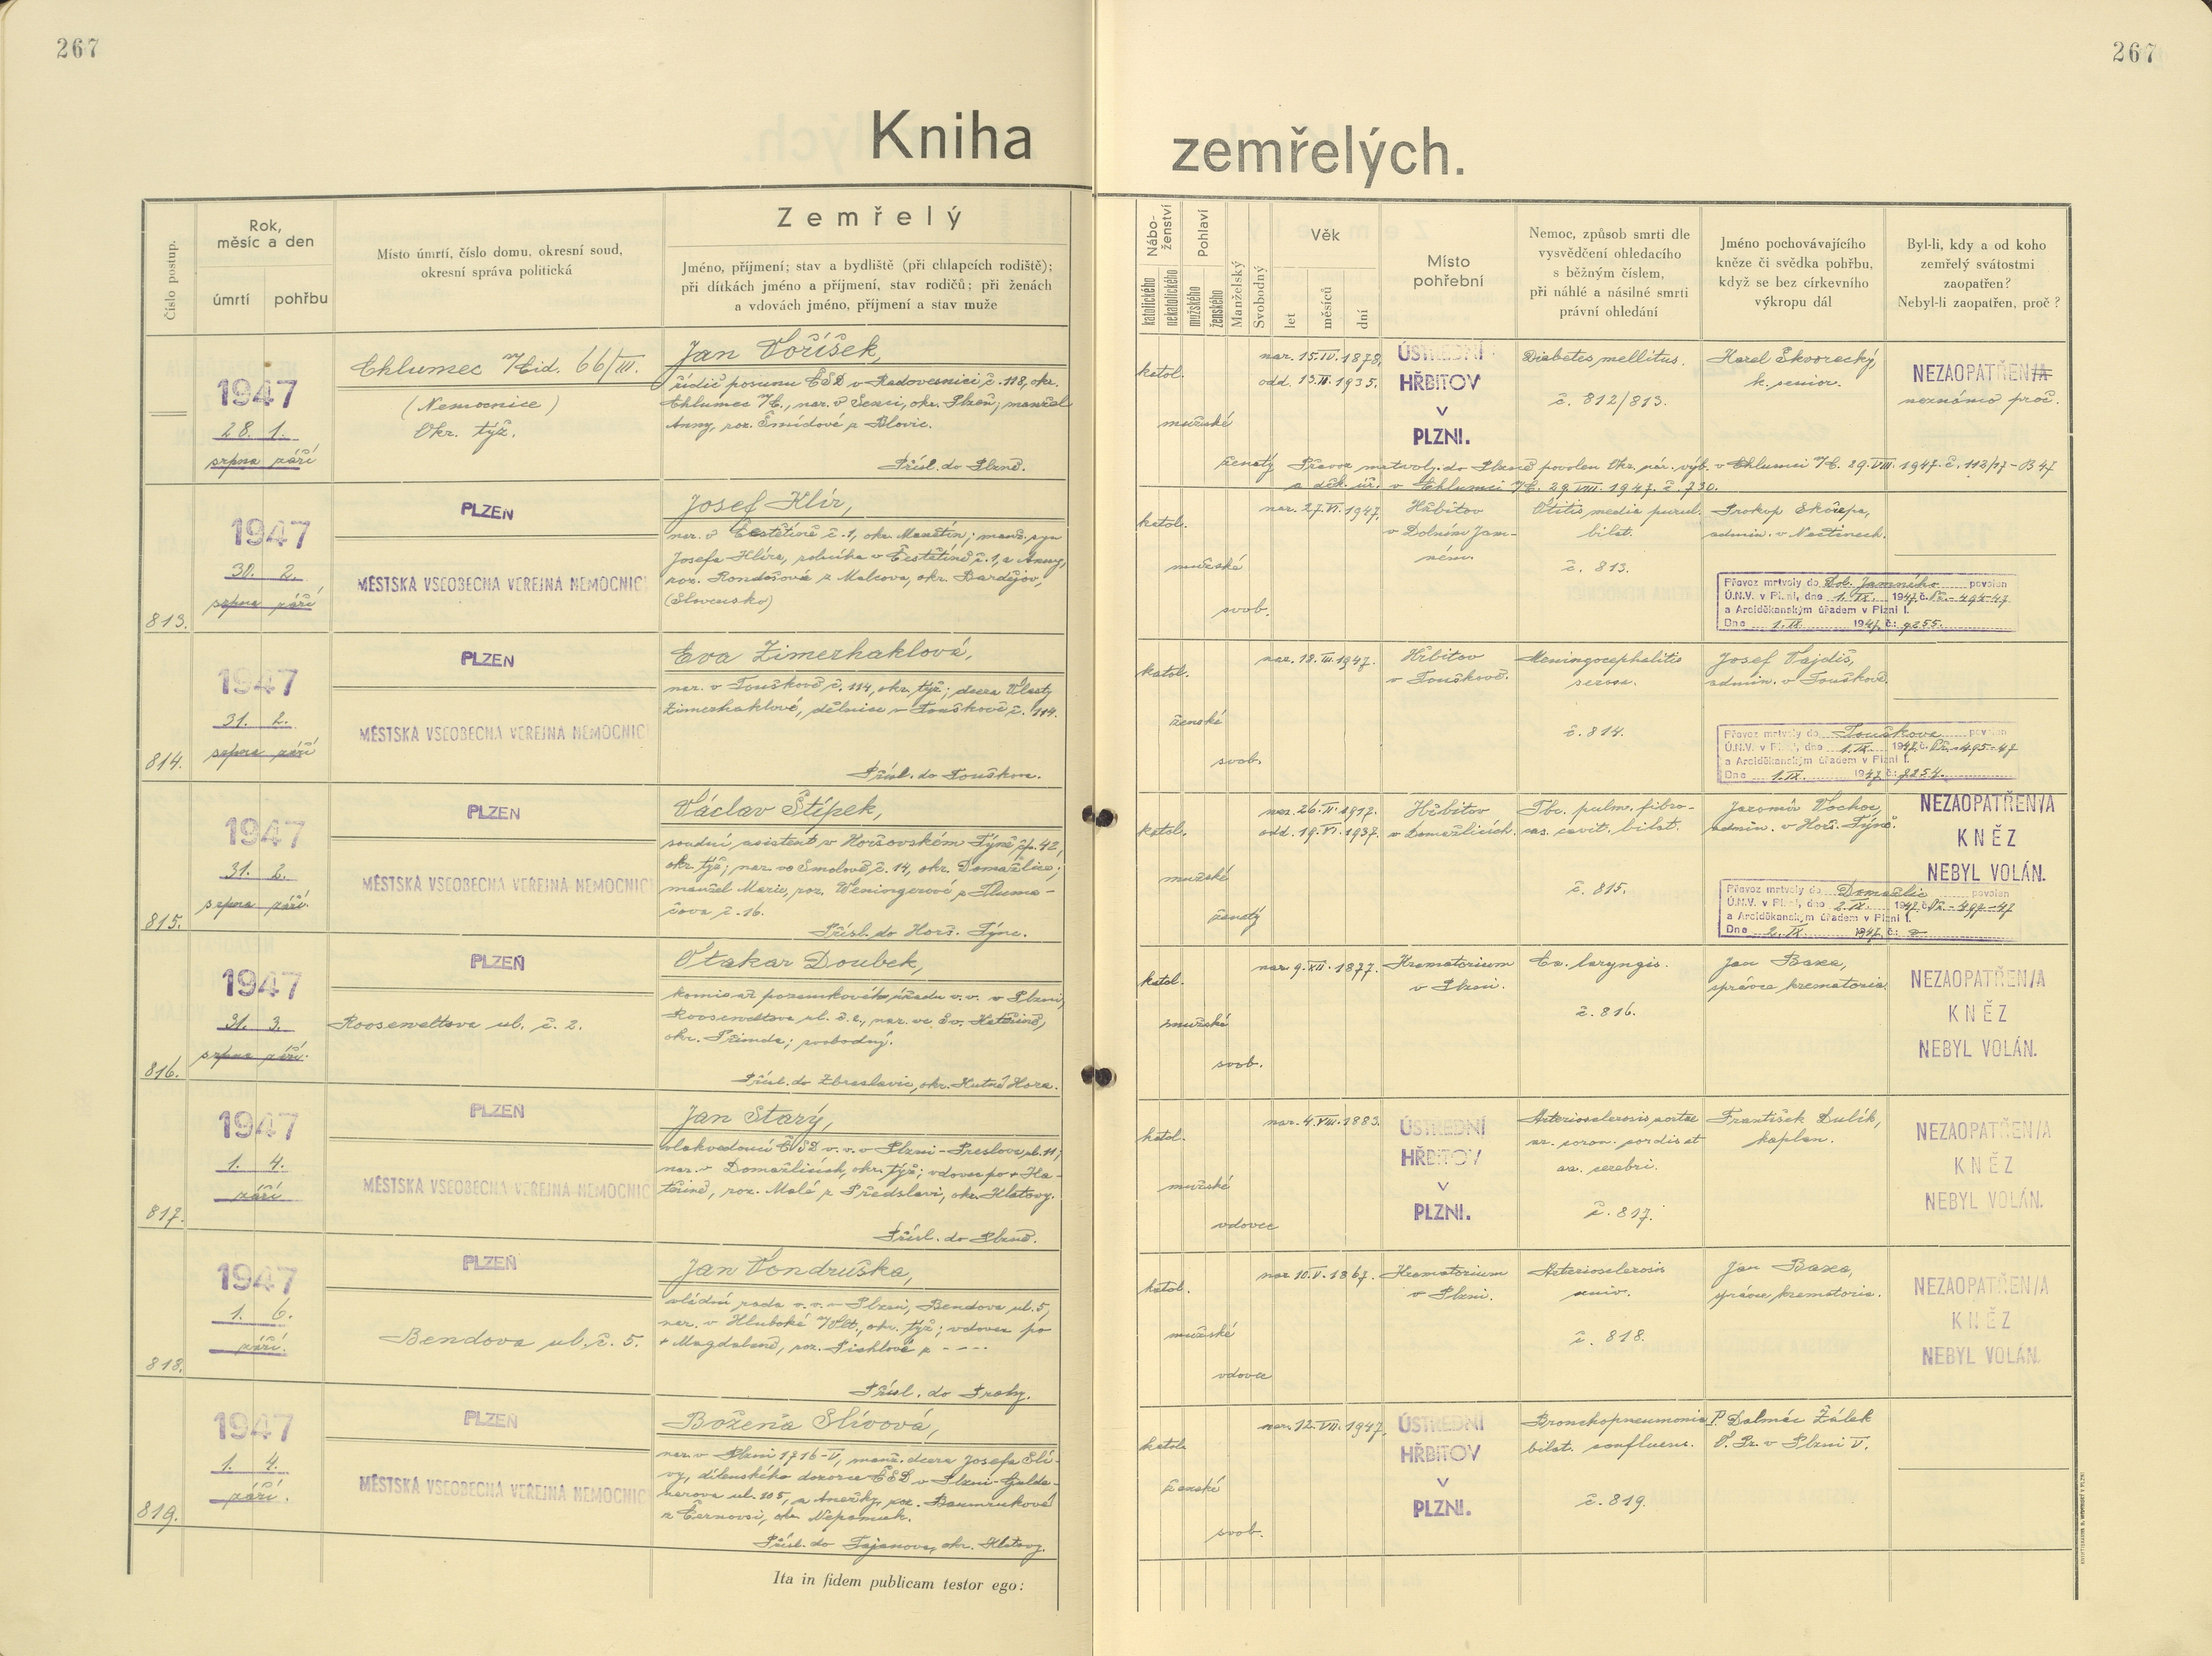 267
267
Kniha zemřelých.
Číslo postup.
Rok,
měsíc a den
úmrtí
pohřbu
Místo úmrtí, číslo domu, okresní soud,
okresní správa politická
Zemřelý
Jméno, příjmení; stav a bydliště (při chlapcích rodiště);
při dítkách jméno a příjmení, stav rodičů; při ženách
a vdovách jméno, příjmení a stav muže
Nábo-
ženství
katolického
nekatolického
Pohlaví
mužského
ženského
Manželský
Svobodný
Věk
let
měsíců
dní
Místo
pohřební
Nemoc, způsob smrti dle
vysvědčení ohledacího
s běžným číslem,
při náhlé a násilné smrti
právní ohledání
Jméno pochovávajícího
kněze či svědka pohřbu,
když se bez církevního
výkropu dál
Byl-li, kdy a od koho
zemřelý svátostmi
zaopatřen?
Nebyl-li zaopatřen, proč?
1947
28. 1.
srpna září
Chlumec n/Cid. 66/III.
(Nemocnice)
Okr. týž.
Jan Voříšek,
řídič posunu ČSD v Radovesnici č. 118, okr.
Chlumec n/C., nar. v Senci, okr. Plzeň; manžel
Anny, roz. Šmídové z Blovic.
Přísl. do Plzně.
katol.
mužské
ženatý
nar. 15.IV.1878,
odd. 13.II.1935.
ÚSTŘEDNÍ
HŘBITOV
V
PLZNI.
Diabetes mellitus.
č. 812/813.
Karel Škvorecký,
k. senior.
NEZAOPATŘEN/A
neznámo proč.
Převoz mrtvoly do Plzně povolen Okr. nár. výb. v Chlumci n/C. 29.VIII.1947. č. 112/17-B 47
a děk. úř. v Chlumci n/C. 29.VIII.1947. č. 730.
813.
1947
30. 2.
srpna září
PLZEŇ
MĚSTSKÁ VŠEOBECNÁ VEŘEJNÁ NEMOCNICE
Josef Klír,
nar. v Čestětíně č. 1, okr. Manětín; manž. syn
Josefa Klíra, rolníka v Čestětíně č. 1, a Anny,
roz. Rondošové z Malcova, okr. Bardějov,
(Slovensko)
katol.
mužské
svob.
nar. 27.VI.1947.
Hřbitov
v Dolním Jam-
ném.
Otitis media purul.
bilat.
č. 813.
Prokop Skořepa,
admin. v Nečtinech.
Převoz mrtvoly do Dol. Jamného povolen
Ú.N.V. v Plzni, dne 1. IX. 1947. č. Př.-494-47
a Arciděkanským úřadem v Plzni I.
Dne 1.IX. 1947. č.: 9255.
814.
1947
31. 2.
srpna září
PLZEŇ
MĚSTSKÁ VŠEOBECNÁ VEŘEJNÁ NEMOCNICE
Eva Zimerhaklová,
nar. v Touškově č. 114, okr. týž; dcera Vlasty
Zimerhaklové, dělnice v Touškově č. 114.
Přísl. do Touškova.
katol.
ženské
svob.
nar. 18.III.1947.
Hřbitov
v Touškově.
Meningocephalitis
serosa.
č. 814.
Josef Vajdiš,
admin. v Touškově.
Převoz mrtvoly do Touškova povolen
Ú.N.V. v Plzni, dne 1.IX. 1947. č. Př.-495-47
a Arciděkanským úřadem v Plzni I.
Dne 1.IX. 1947. č.: 9254.
815.
1947
31. 2.
srpna září.
PLZEŇ
MĚSTSKÁ VŠEOBECNÁ VEŘEJNÁ NEMOCNICE
Václav Štípek,
soudní asistent v Horšovském Týně čp. 42,
okr. týž; nar. ve Smolově č. 14, okr. Domažlice;
manžel Marie, roz. Weningerové z Tluma-
čova č. 16.
Přísl. do Horš. Týna.
katol.
mužské
ženatý
nar. 26.II.1917.
odd. 19.VI.1937.
Hřbitov
v Domažlicích.
Tbc. pulm. fibro-
cas. cavit. bilat.
č. 815.
Jaromír Vochoc,
admin. v Horš. Týně.
NEZAOPATŘEN/A
KNĚZ
NEBYL VOLÁN.
Převoz mrtvoly do Domažlic povolen
Ú.N.V. v Plzni, dne 2.IX. 1947. č. Př.-497-47
a Arciděkanským úřadem v Plzni I.
Dne 2.IX. 1947. č.:
816.
1947
31. 3.
srpna září.
PLZEŇ
Rooseweltova ul. č. 2.
Otakar Doubek,
komisař pozemkového úřadu v.v. v Plzni,
Rooseweltova ul. č. 2, nar. ve Sv. Kateřině,
okr. Přimda; svobodný.
Přísl. do Zbraslavic, okr. Kutná Hora.
katol.
mužské
svob.
nar. 9.XII.1877.
Krematorium
v Plzni.
Ca. laryngis.
č. 816.
Jan Baxa,
správce krematoria.
NEZAOPATŘEN/A
KNĚZ
NEBYL VOLÁN.
817.
1947
1. 4.
září
PLZEŇ
MĚSTSKÁ VŠEOBECNÁ VEŘEJNÁ NEMOCNICE
Jan Starý,
vlakvedoucí ČSD v.v. v Plzni-Preslova ul. 11;
nar. v Domažlicích, okr. týž; vdovec po + Ka-
teřině, roz. Malé z Předslavi, okr. Klatovy.
Přísl. do Plzně.
katol.
mužské
vdovec
nar. 4.VIII.1883.
ÚSTŘEDNÍ
HŘBITOV
V
PLZNI.
Arteriosclerosis aortae
ar. coron. cordis et
ar. cerebri.
č. 817.
František Dulík,
kaplan.
NEZAOPATŘEN/A
KNĚZ
NEBYL VOLÁN.
818.
1947
1. 6.
září.
PLZEŇ
Bendova ul. č. 5.
Jan Vondruška,
vládní rada v.v. v Plzni, Bendova ul. 5,
nar. v Hluboké n/Vlt., okr. týž; vdovec po
+ Magdaleně, roz. Pichlové z ----
Přísl. do Prahy.
katol.
mužské
vdovec
nar. 10.V.1867.
Krematorium
v Plzni.
Arteriosclerosis
univ.
č. 818.
Jan Baxa,
správce krematoria.
NEZAOPATŘEN/A
KNĚZ
NEBYL VOLÁN.
819.
1947
1. 4.
září.
PLZEŇ
MĚSTSKÁ VŠEOBECNÁ VEŘEJNÁ NEMOCNICE
Božena Slívová,
nar. v Plzni 1716-V, manž. dcera Josefa Slí-
vy, dílenského dozorce ČSD v Plzni-Gulde-
nerova ul. 105, a Anežky, roz. Baumrukové
z Černovsi, okr. Nepomuk.
Přísl. do Tajanova, okr. Klatovy.
katol.
ženské
svob.
nar. 12.VIII.1947.
ÚSTŘEDNÍ
HŘBITOV
V
PLZNI.
Bronchopneumonia
bilat. confluens.
č. 819.
P. Dalmác Žálek
O. Pr. v Plzni V.
Ita in fidem publicam testor ego: